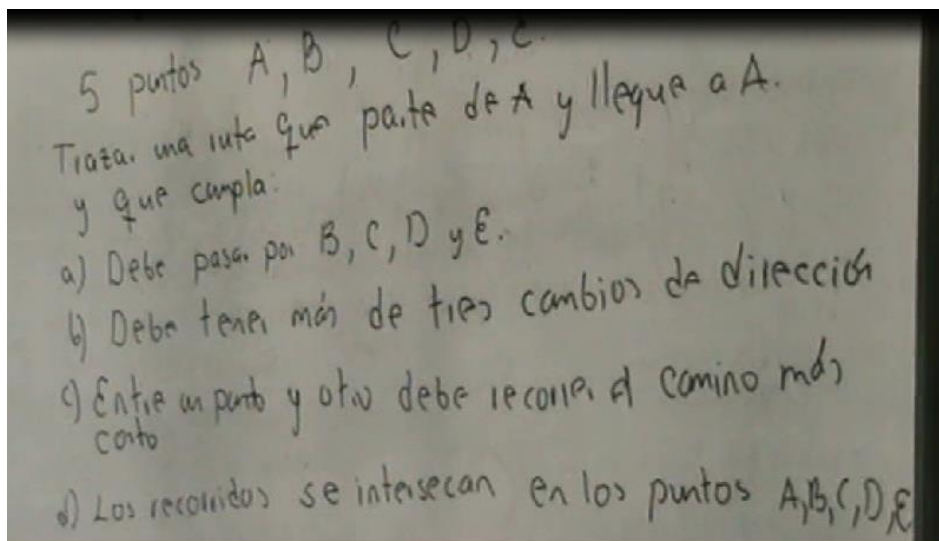 5 puntos A, B, C, D, E.
Trazar una ruta que parta de A y llegue a A.
y que cumpla:
a) Debe pasar por B, C, D y E.
b) Debe tener más de tres cambios de dirección
c) Entre un punto y otro debe recorrer el camino más
corto
d) Los recorridos se intersecan en los puntos A, B, C, D, E